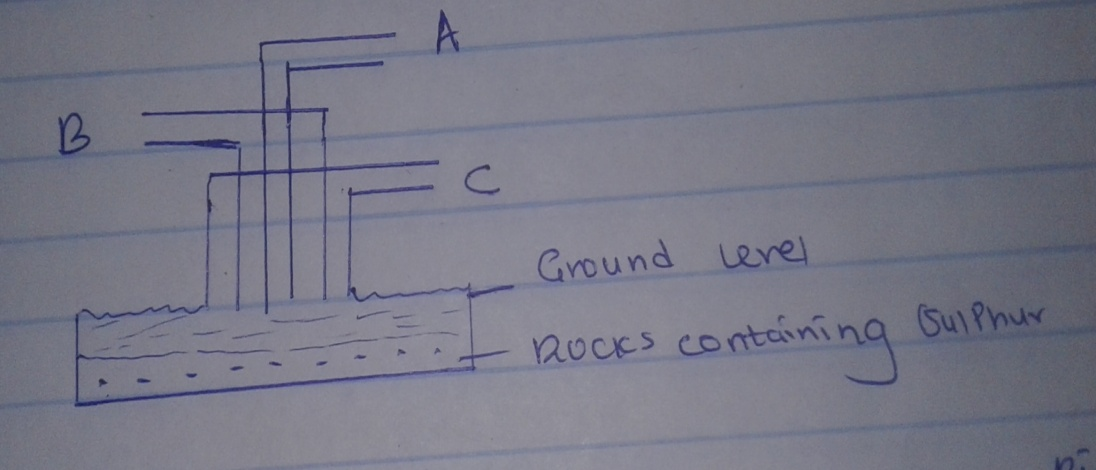 A
B
C
Ground Level
Rocks containing Sulphur